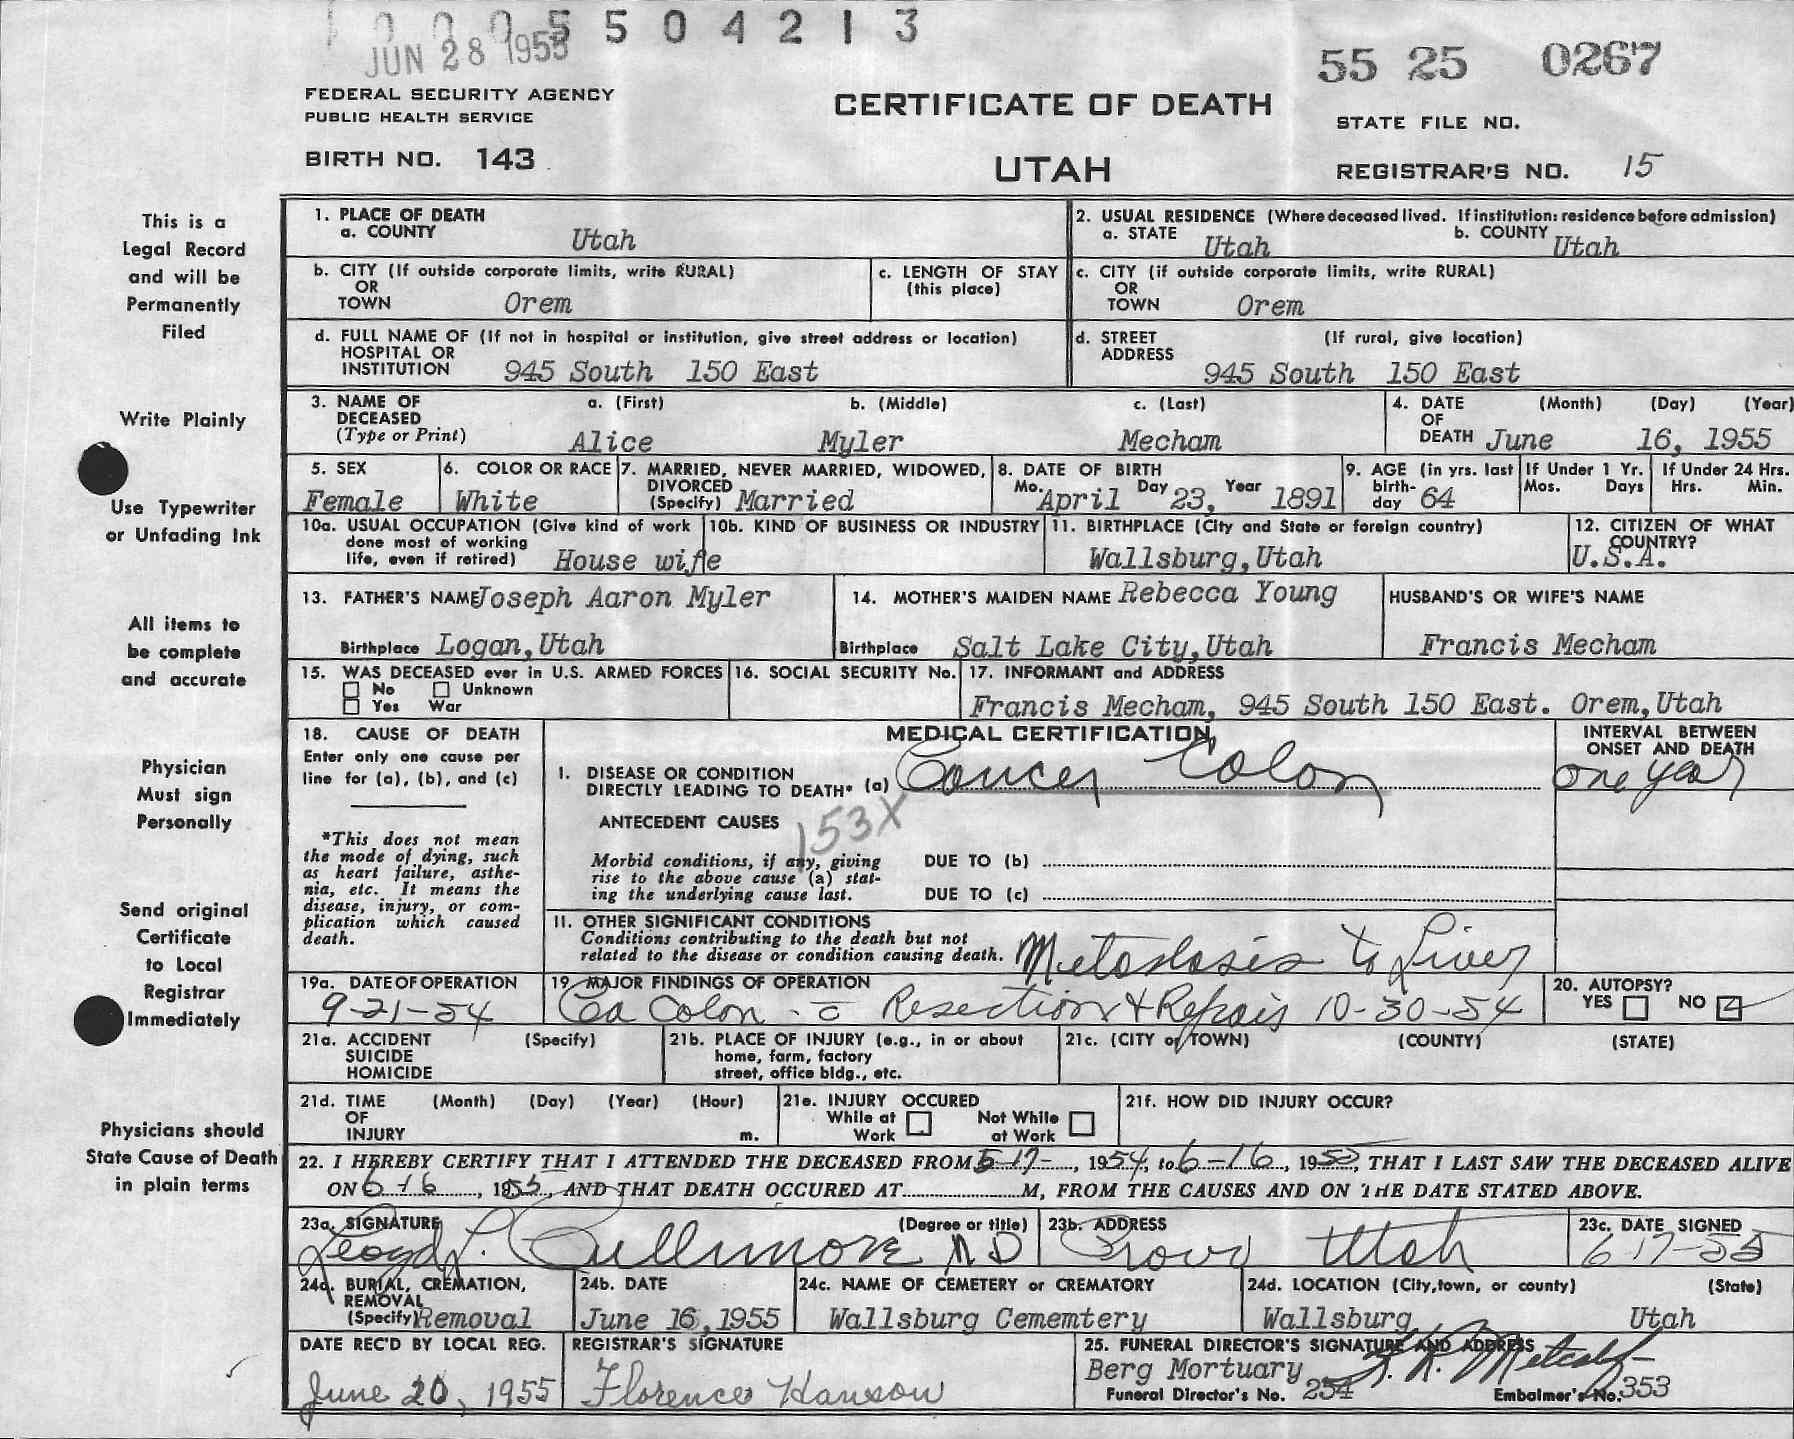 5504213
JUN 28 1955
55 25 0267
FEDERAL SECURITY AGENCY
PUBLIC HEALTH SERVICE
CERTIFICATE OF DEATH
STATE FILE NO.
BIRTH NO. 143
UTAH
REGISTRAR'S NO. 15
This is a
Legal Record
and will be
Permanently
Filed
Write Plainly
Use Typewriter
or Unfading Ink
All items to
be complete
and accurate
Physician
Must sign
Personally
Send original
Certificate
to Local
Registrar
Immediately
Physicians should
State Cause of Death
in plain terms
1. PLACE OF DEATH
a. COUNTY Utah
2. USUAL RESIDENCE (Where deceased lived. If institution: residence before admission)
a. STATE Utah b. COUNTY Utah
b. CITY (If outside corporate limits, write RURAL)
OR
TOWN Orem
c. LENGTH OF STAY
(this place)
c. CITY (if outside corporate limits, write RURAL)
OR
TOWN Orem
d. FULL NAME OF (If not in hospital or institution, give street address or location)
HOSPITAL OR
INSTITUTION 945 South 150 East
d. STREET (If rural, give location)
ADDRESS
945 South 150 East
3. NAME OF a. (First) b. (Middle) c. (Last)
DECEASED
(Type or Print) Alice Myler Mecham
4. DATE (Month) (Day) (Year)
OF
DEATH June 16, 1955
5. SEX
Female
6. COLOR OR RACE
White
7. MARRIED, NEVER MARRIED, WIDOWED,
DIVORCED
(Specify) Married
8. DATE OF BIRTH
Mo. April Day 23, Year 1891
9. AGE (in yrs. last
birth-
day 64
If Under 1 Yr.
Mos. Days
If Under 24 Hrs.
Hrs. Min.
10a. USUAL OCCUPATION (Give kind of work
done most of working
life, even if retired) House wife
10b. KIND OF BUSINESS OR INDUSTRY
11. BIRTHPLACE (City and State or foreign country)
Wallsburg, Utah
12. CITIZEN OF WHAT
COUNTRY?
U.S.A.
13. FATHER'S NAME Joseph Aaron Myler
Birthplace Logan, Utah
14. MOTHER'S MAIDEN NAME Rebecca Young
Birthplace Salt Lake City, Utah
HUSBAND'S OR WIFE'S NAME
Francis Mecham
15. WAS DECEASED ever in U.S. ARMED FORCES
No Unknown
Yes War
16. SOCIAL SECURITY No.
17. INFORMANT and ADDRESS
Francis Mecham, 945 South 150 East. Orem, Utah
18. CAUSE OF DEATH
Enter only one cause per
line for (a), (b), and (c)
*This does not mean
the mode of dying, such
as heart failure, asthe-
nia, etc. It means the
disease, injury, or com-
plication which caused
death.
MEDICAL CERTIFICATION
INTERVAL BETWEEN
ONSET AND DEATH
I. DISEASE OR CONDITION
DIRECTLY LEADING TO DEATH* (a) Cancer Colon one year
ANTECEDENT CAUSES 153X
Morbid conditions, if any, giving
rise to the above cause (a) stat-
ing the underlying cause last.
DUE TO (b)
DUE TO (c)
II. OTHER SIGNIFICANT CONDITIONS
Conditions contributing to the death but not
related to the disease or condition causing death. Metastasis to Liver
19a. DATE OF OPERATION
9-21-54
19. MAJOR FINDINGS OF OPERATION
Ca Colon - c̄ Resection & Repair 10-30-54
20. AUTOPSY?
YES NO
21a. ACCIDENT (Specify)
SUICIDE
HOMICIDE
21b. PLACE OF INJURY (e.g., in or about
home, farm, factory
street, office bldg., etc.
21c. (CITY or TOWN) (COUNTY) (STATE)
21d. TIME (Month) (Day) (Year) (Hour)
OF
INJURY m.
21e. INJURY OCCURED
While at Not While
Work at Work
21f. HOW DID INJURY OCCUR?
22. I HEREBY CERTIFY THAT I ATTENDED THE DECEASED FROM 5-17-, 1954, to 6-16, 1955, THAT I LAST SAW THE DECEASED ALIVE
ON 6-16, 1955, AND THAT DEATH OCCURED AT M, FROM THE CAUSES AND ON THE DATE STATED ABOVE.
23a. SIGNATURE (Degree or title)
Lloyd L. Cullimore MD
23b. ADDRESS
Provo Utah
23c. DATE SIGNED
6-17-55
24a. BURIAL, CREMATION,
REMOVAL
(Specify) Removal
24b. DATE
June 16, 1955
24c. NAME OF CEMETERY or CREMATORY
Wallsburg Cememtery
24d. LOCATION (City, town, or county) (State)
Wallsburg Utah
DATE REC'D BY LOCAL REG.
June 20, 1955
REGISTRAR'S SIGNATURE
Florence Hanson
25. FUNERAL DIRECTOR'S SIGNATURE AND ADDRESS
Berg Mortuary Metcalf
Funeral Director's No. 254 Embalmer's No. 353